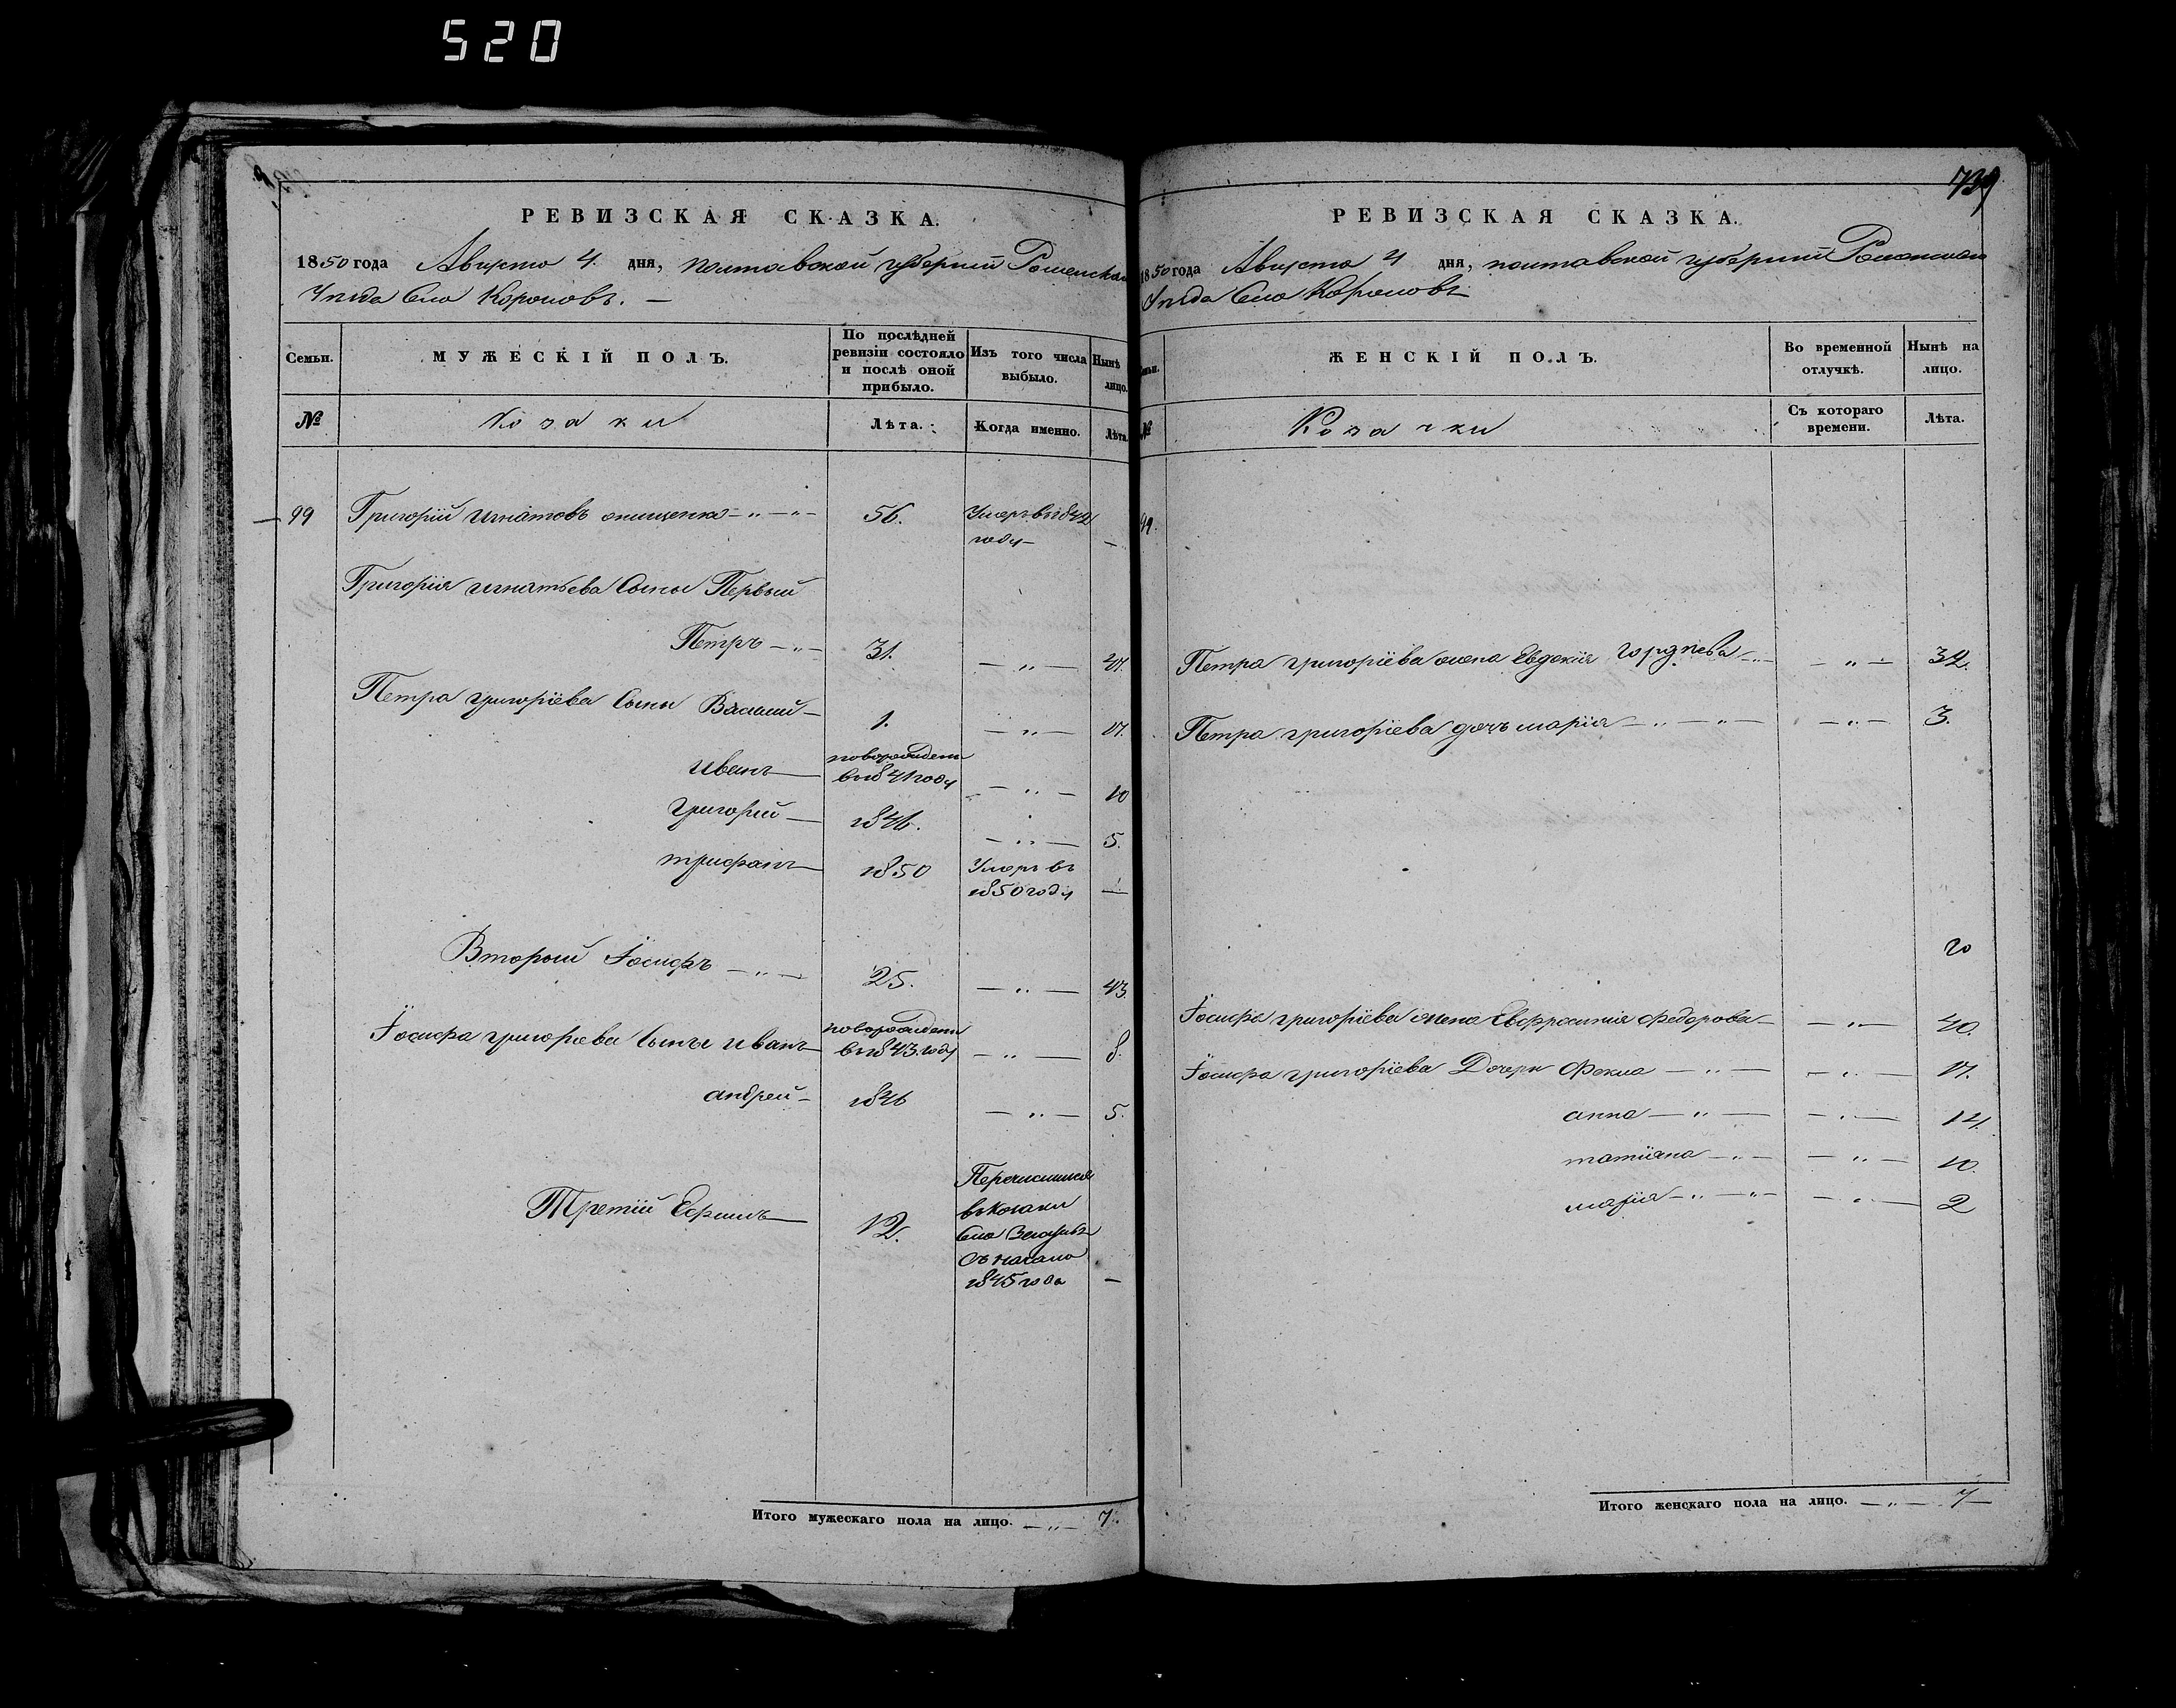 520
РЕВИЗСКАЯ СКАЗКА.
1850 года Августа 4. дня, полтавской губернии Роменскаго
Уезда Села Коровинъ. —
Семьи.
МУЖЕСКІЙ ПОЛЪ.
По послѣдней ревизіи состояло и послѣ оной прибыло.
Изъ того числа выбыло.
Нынѣ лицо.
№
Козаки
Лѣта.
Когда именно.
Лѣта.
99 Григорій игнатовъ онищенко 56. Умеръ въ 1842
году —
Григорія игнатьева Сыны Первый
Петръ 31.
Петра григоріева Сыны Василий 1. 17.
новорожденъ
иванъ въ 1841 году 10
григорий 1846. 5.
трифанъ 1850 Умеръ въ
1850 году —
Вторый Іосифъ 25. 43.
новорожденъ
Іосифа григориева Сыны иванъ въ 1843. году 8.
андрей 1846 5.
Перечислился
Третій Ефимъ 12. въ козаки
Села
съ начала
1845 года —
Итого мужескаго пола на лицо. 7.
739
РЕВИЗСКАЯ СКАЗКА.
1850 года Августа 4 дня, полтавской губерніи Роменскаго
Села
№
ЖЕНСКІЙ ПОЛЪ.
Во временной отлучкѣ.
Нынѣ на лицо.
Козачки
Съ котораго времени.
Лѣта.
99.
Петра григоріева жена Евдокія гордѣева 32.
Петра григоріева дочь марія 3.
20
Іосифа григоріева жена Евфросинія Федорова 40.
Іосифа григоріева Дочери Фекла 17.
анна 14.
татіяна 10.
марія 2
Итого женскаго пола на лицо. 7